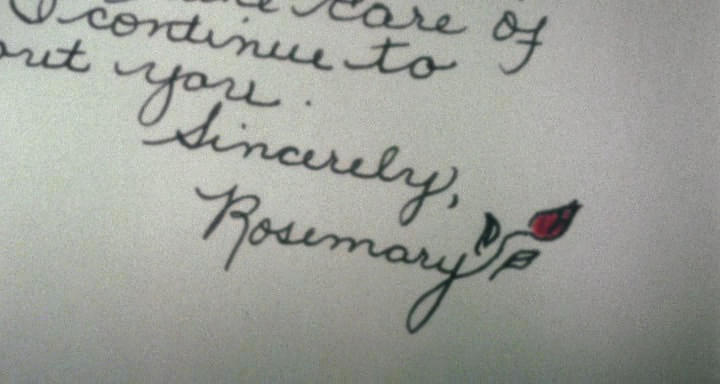 care of
I continue to
out you.
Sincerely,
Rosemary